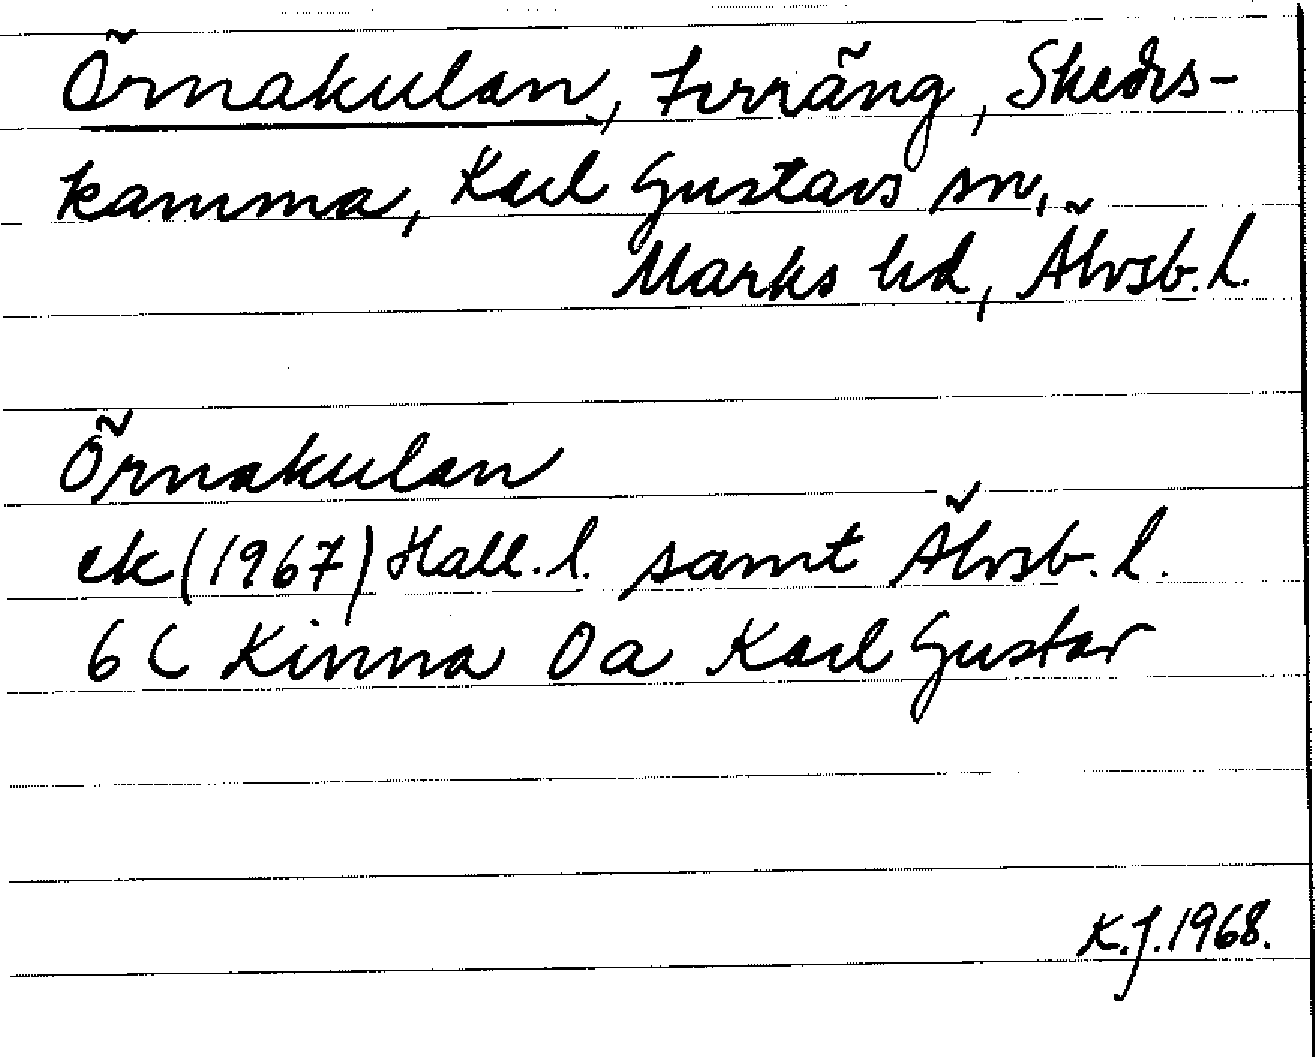 Örnakulan, terräng, Skeds-
kamma, Karl Gustavs sn,
Marks hd, Älvsb. l.
Örnakulan
ek (1967) Hall. l. samt Älvsb. l.
6 C Kinna 0 a Karl Gustav
K.J. 1968.